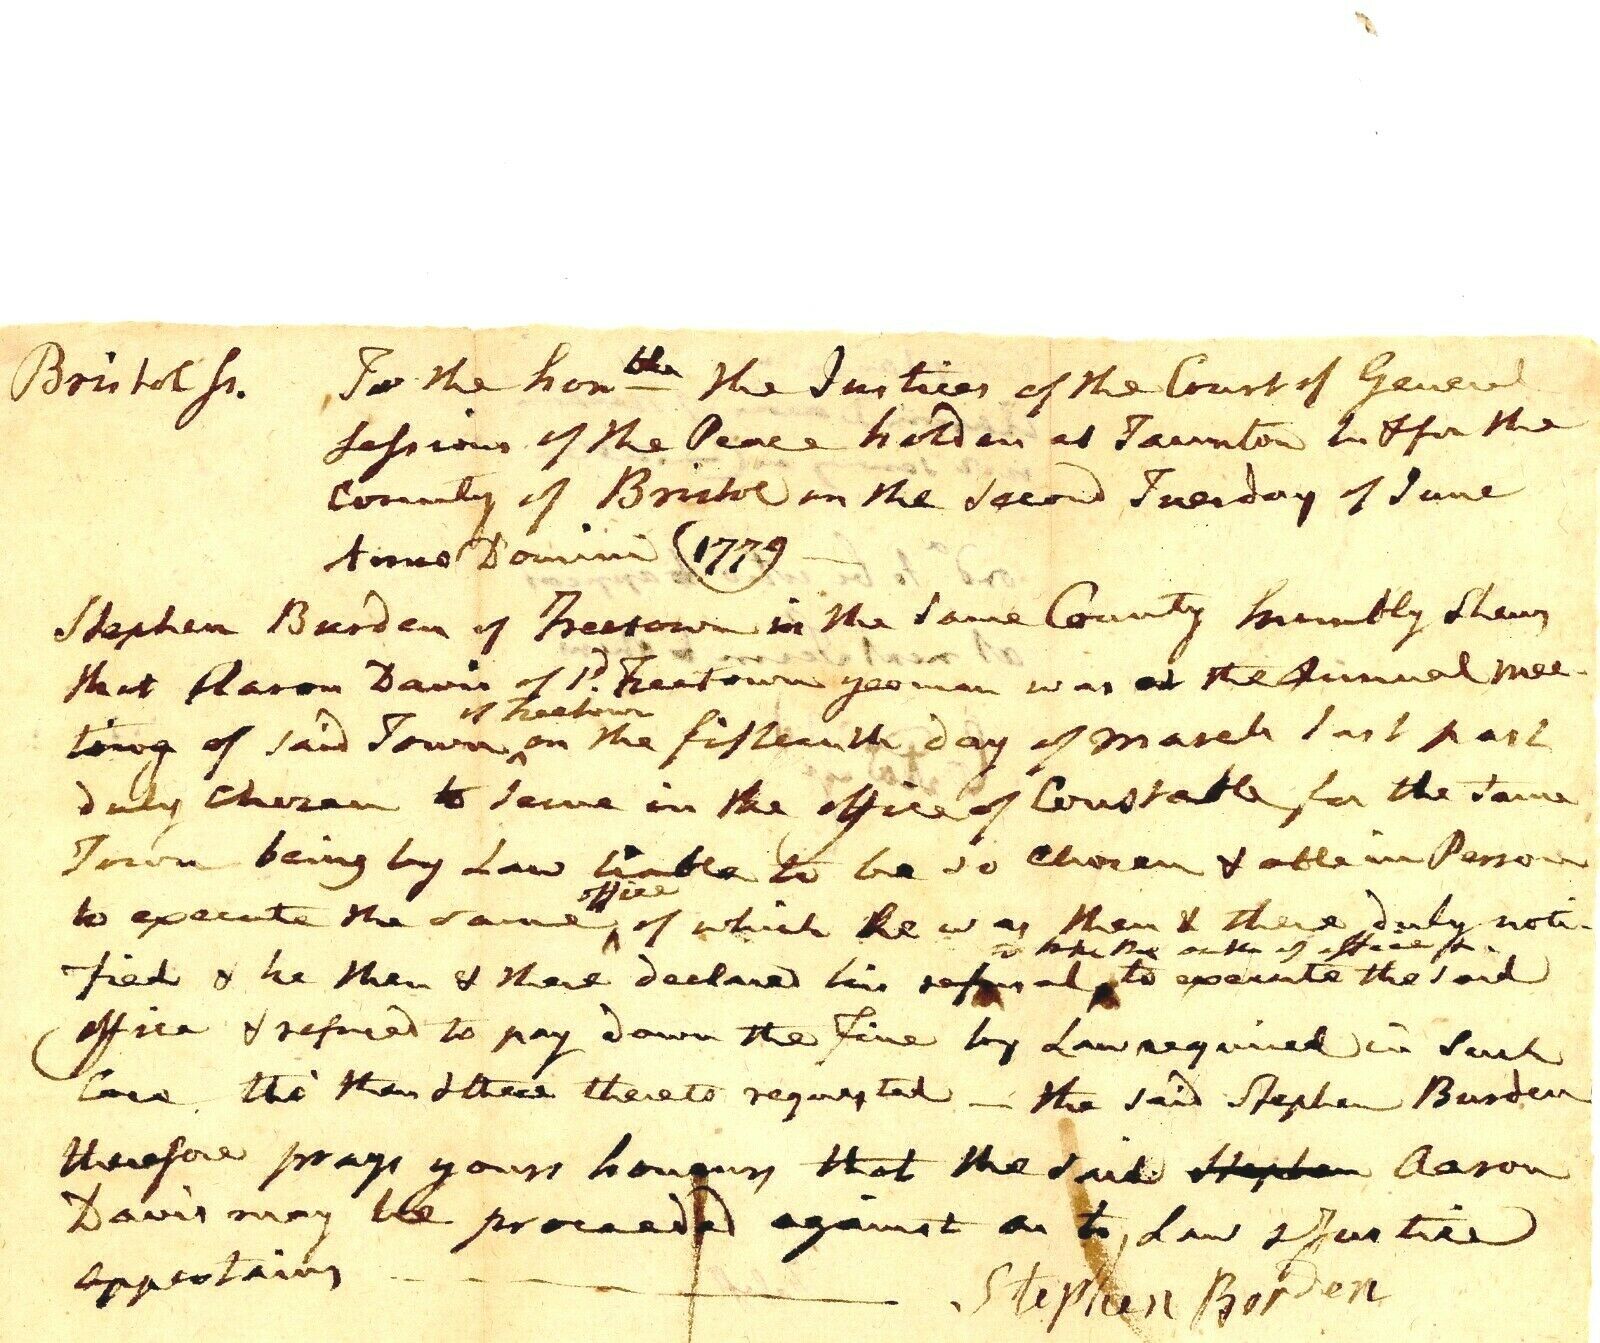 Bristol ss. To the honble the Justices of the Court of General
Sessions of the Peace holden at Taunton in & for the
County of Bristol on the second Tuesday of June
Anno Domini 1779
Stephen Burden of Freetown in the same County humbly Shews
that Aaron Davis of sd. Freetown yeoman was at the Annual mee-
ting of said Town of Freetown on the fifteenth day of March last past
duly chosen to serve in the office of Constable for the same
Town being by Law liable to be so chosen & able in Person
to execute the same office of which he was then & there duly noti-
fied & he then & there declared his refusal to take the oath of office & to execute the said
office & refused to pay down the Fine by Law required in such
Case tho' then & there thereto requested — the said Stephen Burden
therefore prays yours honours that the said Stephen Aaron
Davis may be proceeded against as to Law & Justice
appertains
Stephen Borden